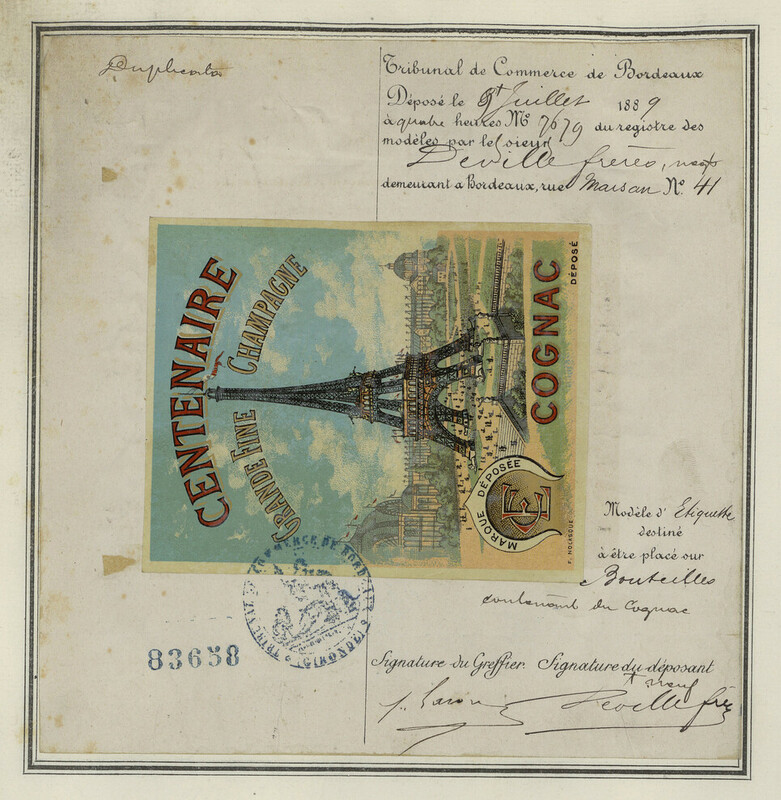 Duplicata
Tribunal de Commerce de Bordeaux
Déposé le 9 Juillet 1889
à quatre heures No 7679 du registre des
modèles par le sieur
Deville frères,
demeurant a Bordeaux, rue Marsan No. 41
CENTENAIRE
GRANDE FINE CHAMPAGNE
COGNAC
DÉPOSÉ
MARQUE DÉPOSÉE
F. NOLASQUE
Modèle d'Etiquette
destiné
à être placé sur
Bouteilles
contenant du Cognac
COMMERCE DE BORDEAUX
83658
Signature du Greffier. Signature du déposant
Deville frères